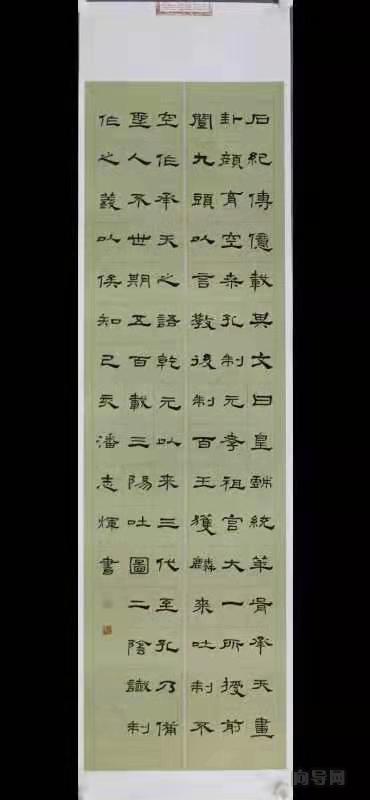 石紀傳億載其文曰皇戲統華胥承天畫
卦顏育空桑孔制元孝祖官大一所授前
闓九頭以言教後制百王獲麟來吐制不
空作承天之語乾元以來三代至孔乃備
聖人不世期五百載三陽吐圖二陰讖制
作之義以俟知己亥潘志煇書
向导网